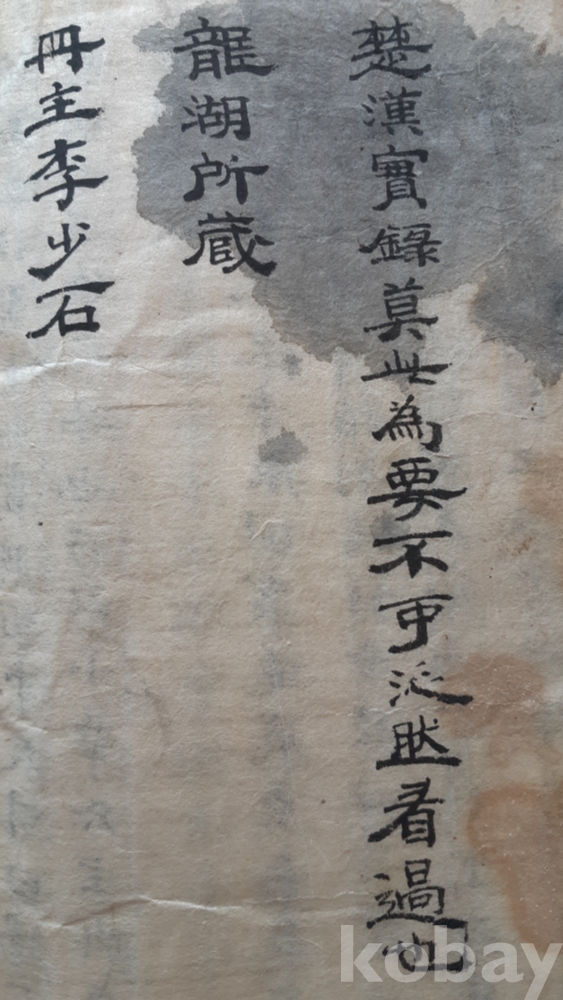 楚漢實錄莫此為要不可泛然看過也
龍湖所蔵
冊主李少石
kobay